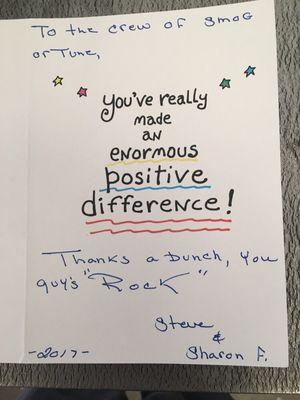 To the crew of Smog
or Tune,
you've really
made
an
enormous
positive
difference!
Thanks a bunch, you
guy's "Rock"
Steve
&
Sharon F.
-2017-